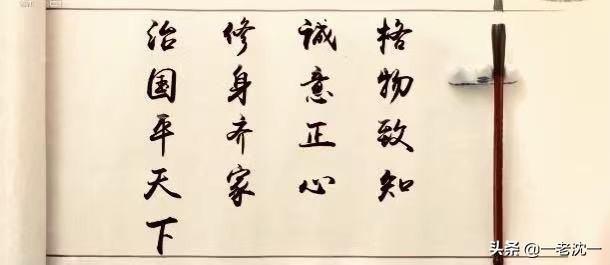 格物致知
诚意正心
修身齐家
治国平天下
头条 @一老沈一